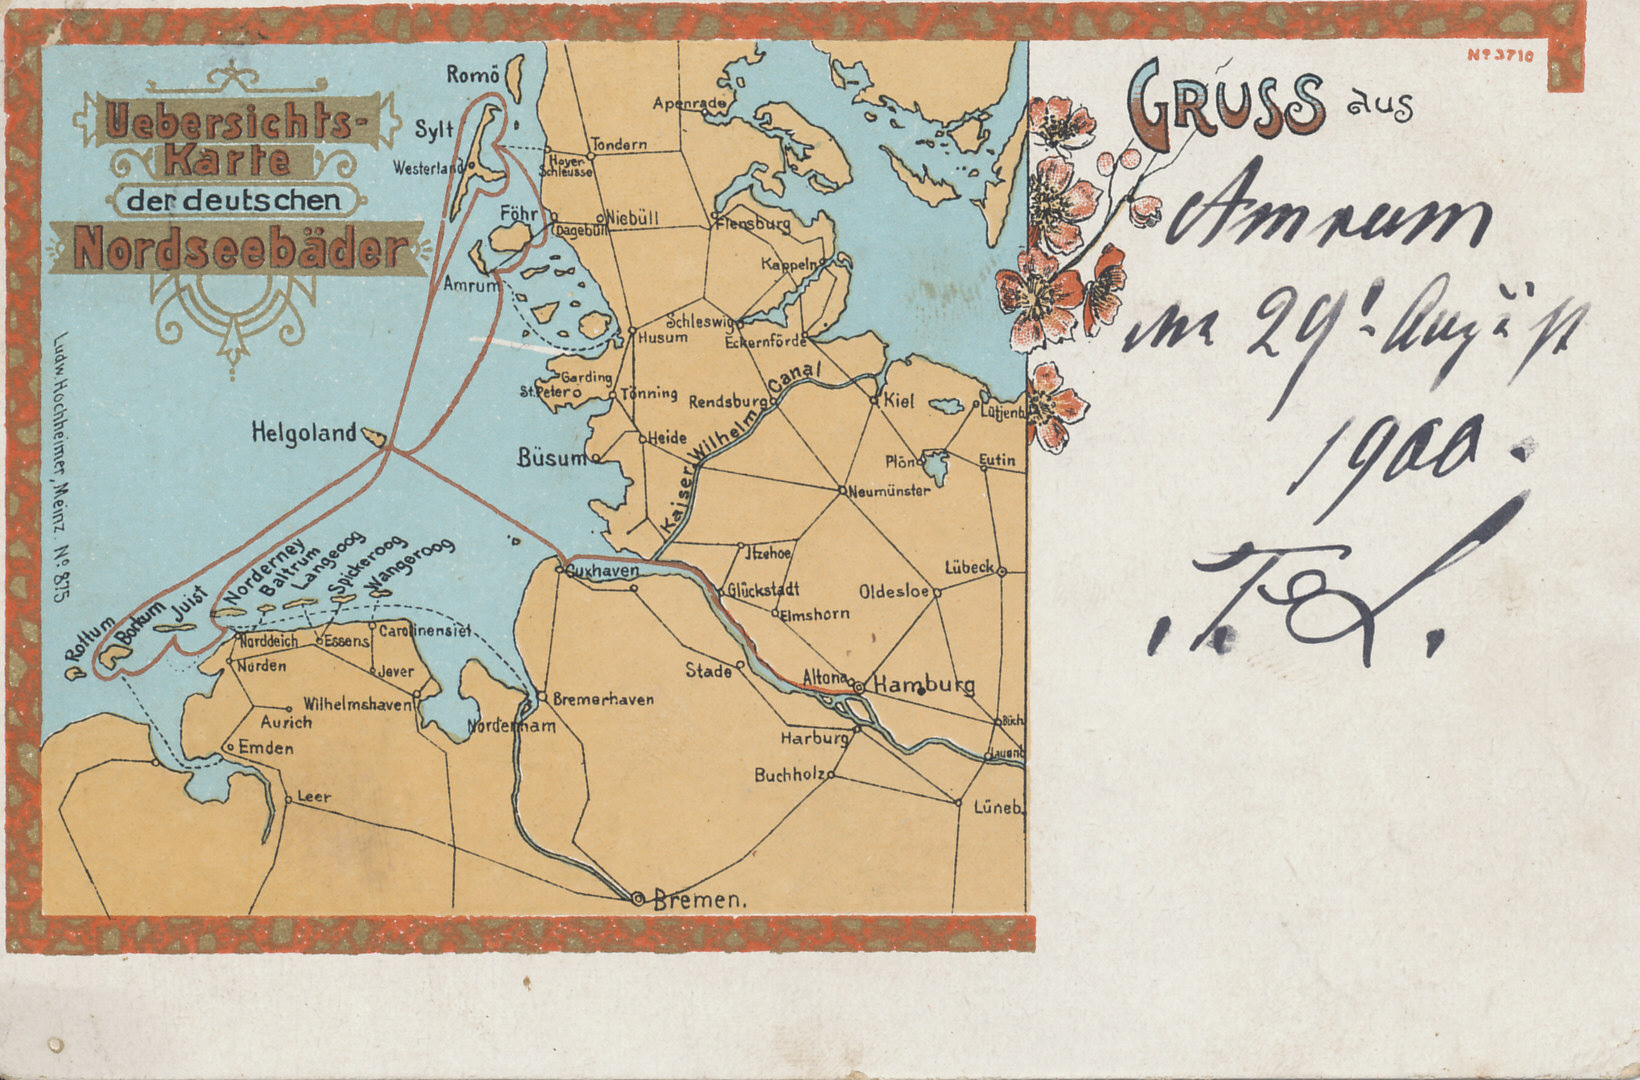 Uebersichts-
Karte
der deutschen
Nordseebäder
Ludw. Hochheimer, Meinz. Nº 875
Nº 3710
GRUSS aus
Amrum
29t August
1900.
T. L.
Romö
Sylt
Westerland
Hoyer
Schleusse
Tondern
Apenrade
Föhr
Dagebüll
Niebüll
Flensburg
Kappeln
Amrum
Schleswig
Eckernförde
Husum
Garding
St. Peter
Tönning
Rendsburg
Kaiser Wilhelm Canal
Kiel
Lütjenb.
Helgoland
Büsum
Heide
Plön
Eutin
Neumünster
Itzehoe
Lübeck
Cuxhaven
Glückstadt
Oldesloe
Elmshorn
Rottum
Borkum
Juist
Norderney
Baltrum
Langeoog
Spickeroog
Wangeroog
Norddeich
Essens
Carolinensiel
Norden
Jever
Stade
Altona
Hamburg
Wilhelmshaven
Bremerhaven
Aurich
Nordenham
Büch.
Harburg
Emden
Lauenb.
Buchholz
Leer
Lüneb.
Bremen.